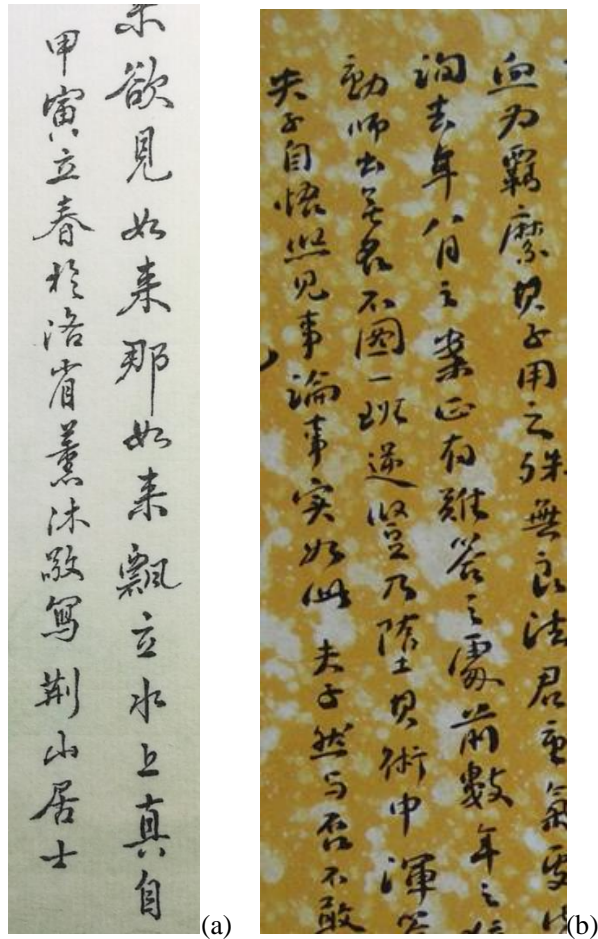 未欲見如来那如来飄立水上真自
甲寅立春於洛省薰沐敬寫荆山居士
(a)
血为羈縻其子用之殊無良法君重氣
詢去年八月之案正有難答之處前數年之
動師出無名不圖一班逆竪乃隨其術中渾答
夫子自悟與见事論事实如此夫子然与否不敢
(b)